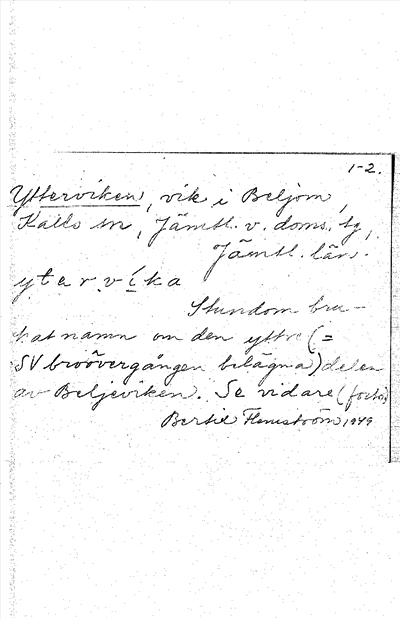 1-2.
Ytterviken, vik i Beljom,
Kalls sn, Jämtl. v. doms. tg,
Jämtl. län.
ytarvíka
Stundom bru-
kat namn om den yttre (=
SV broövergången belägna) delen
av Beljeviken. Se vidare (forts.)
Bertil Flemström 1949